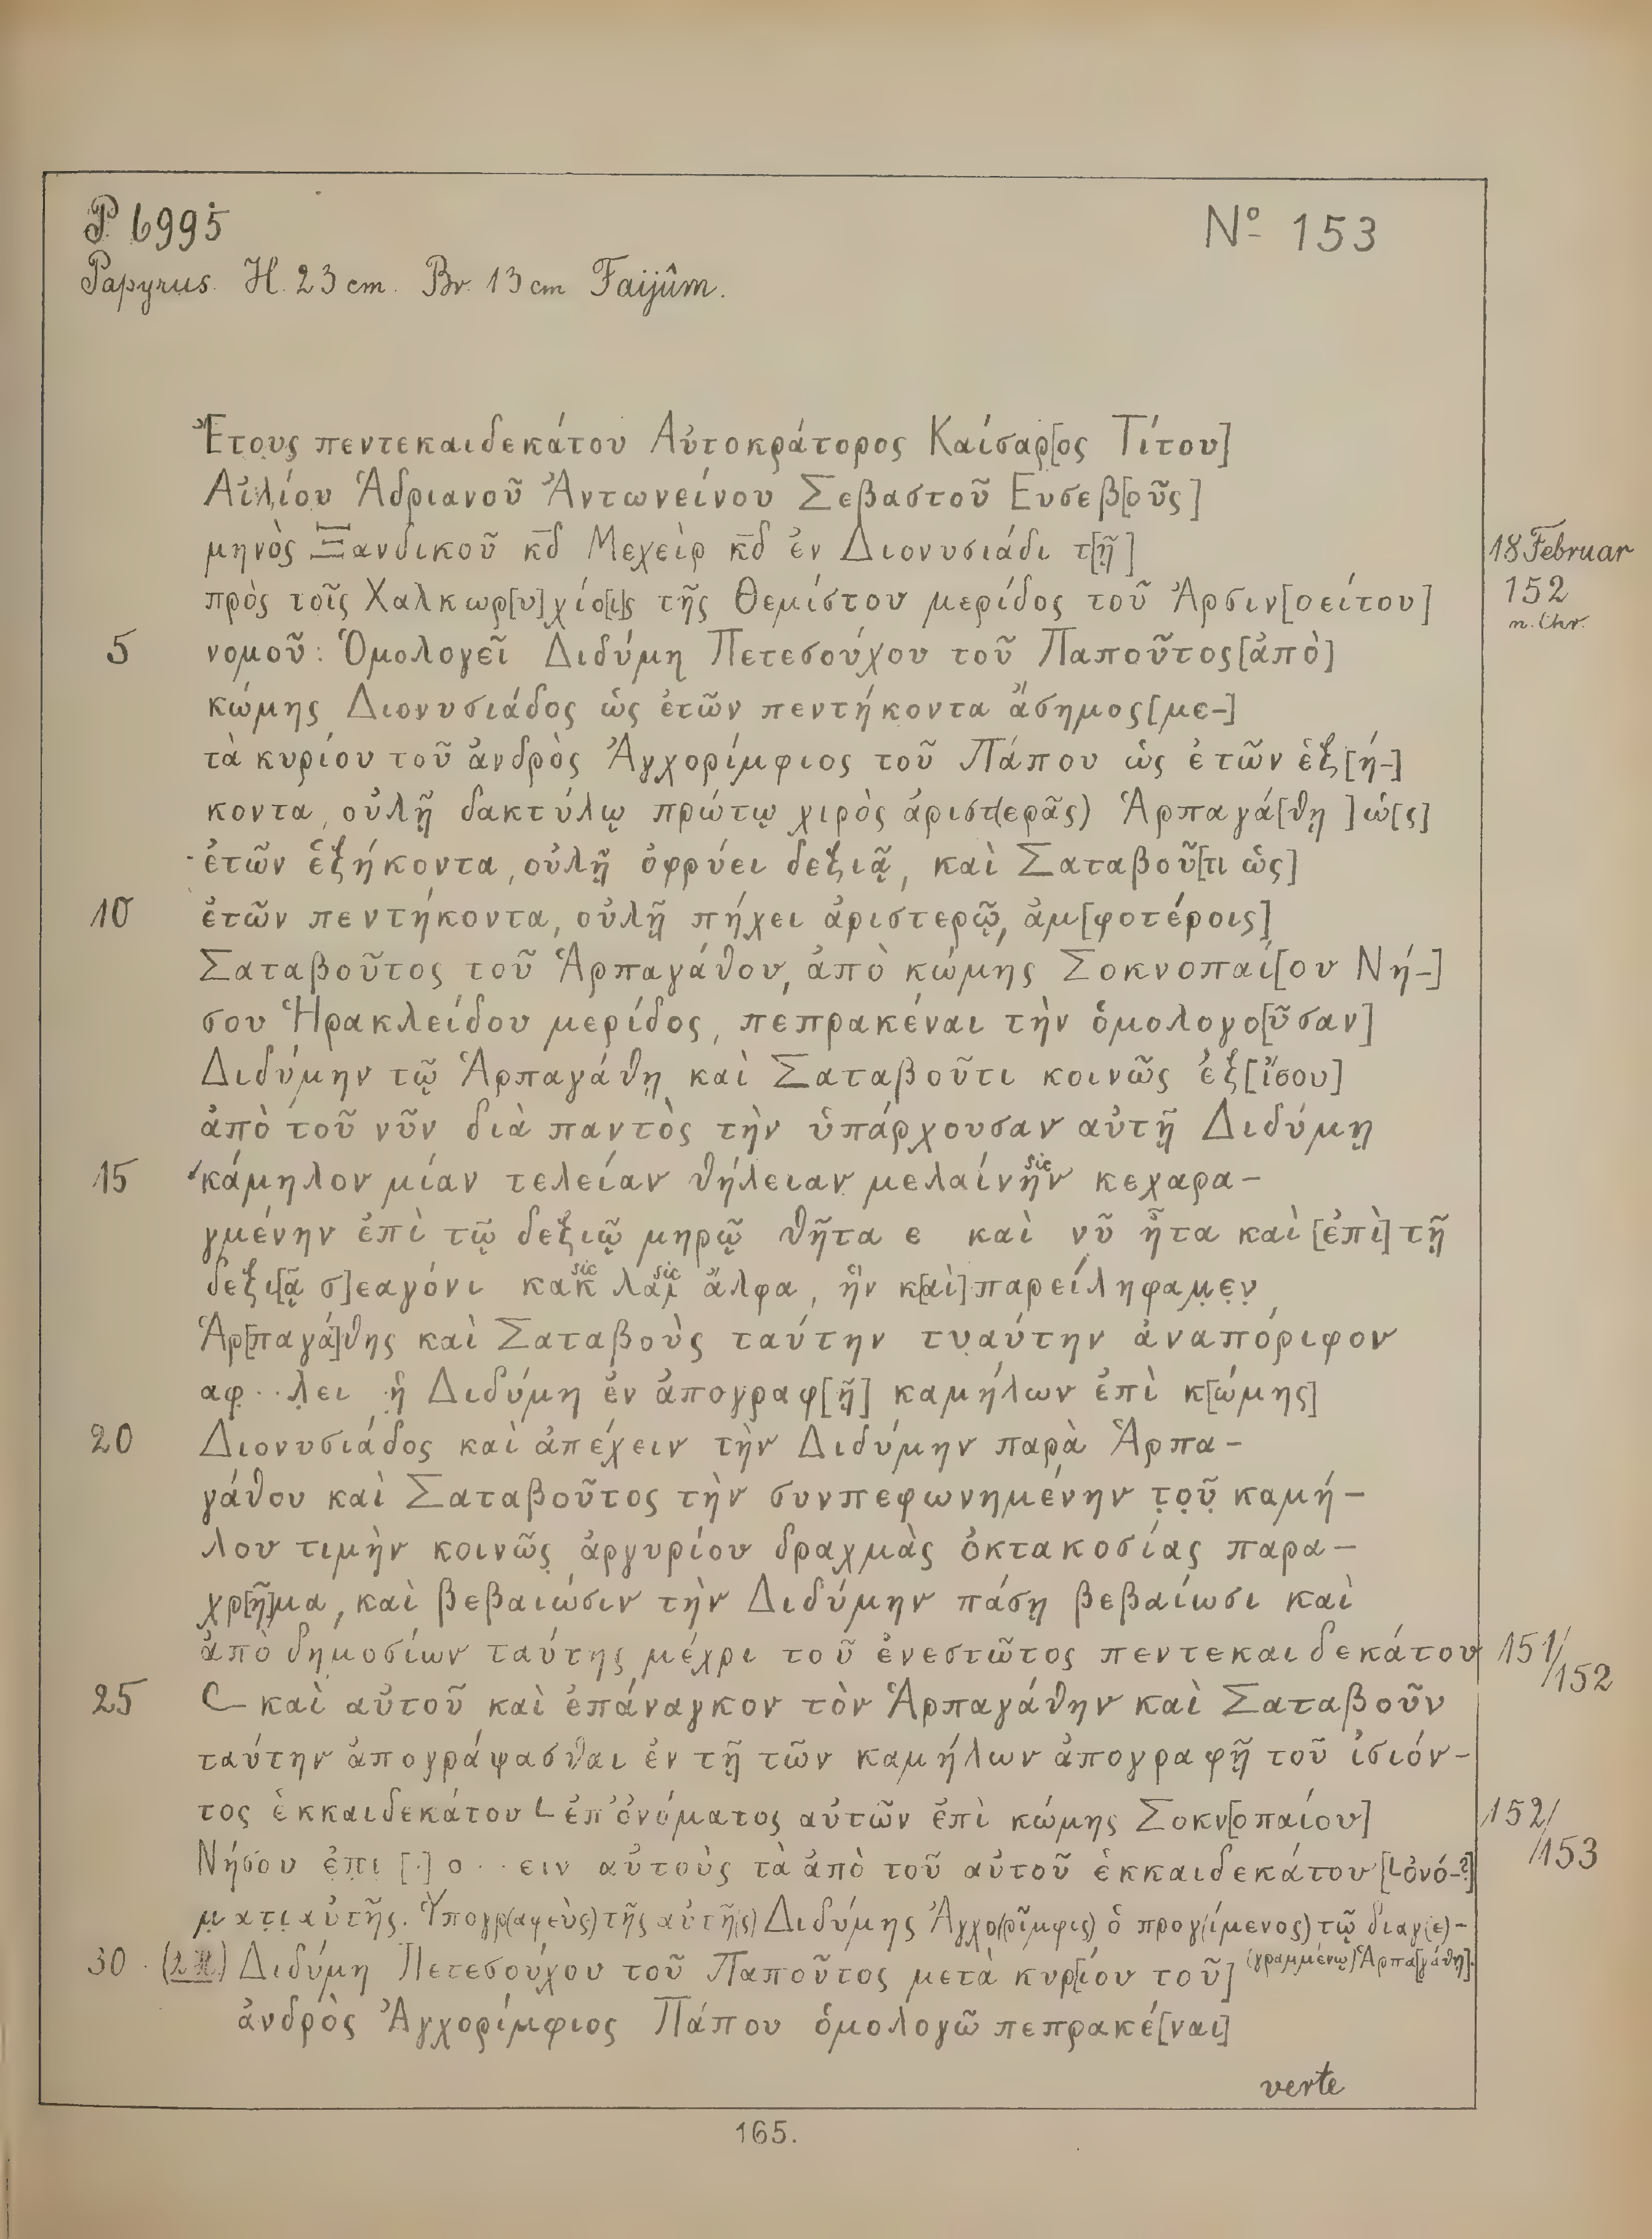 P 6995
Nº 153
Papyrus. H. 23 cm. Br. 13 cm Faijûm.
Ἔτους πεντεκαιδεκάτου Αὐτοκράτορος Καίσαρ[ος Τίτου]
Αἰλίου Ἁδριανοῦ Ἀντωνείνου Σεβαστοῦ Ευσεβ[οῦς]
μηνὸς Ξανδικοῦ κ̅δ Μεχεὶρ κ̅δ ἐν Διονυσιάδι τ[ῇ]
18 Februar
152
n. Chr.
πρὸς τοῖς Χαλκωρ[υ]χίο[ι]ς τῆς Θεμίστου μερίδος τοῦ Ἀρσιν[οείτου]
5 νομοῦ: Ὁμολογεῖ Διδύμη Πετεσούχου τοῦ Παποῦτος [ἀπὸ]
κώμης Διονυσιάδος ὡς ἐτῶν πεντήκοντα ἄσημος [με-]
τὰ κυρίου τοῦ ἀνδρὸς Ἀγχορίμφιος τοῦ Πάπου ὡς ἐτῶν ἑξ[ή-]
κοντα, οὐλῇ δακτύλῳ πρώτῳ χιρὸς ἀριστ(ερᾶς) Ἁρπαγά[θῃ] ὡ[ς]
ἐτῶν ἑξήκοντα, οὐλῇ ὀφρύει δεξιᾷ, καὶ Σαταβοῦ[τι ὡς]
10 ἐτῶν πεντήκοντα, οὐλῇ πήχει ἀριστερῷ, ἀμ[φοτέροις]
Σαταβοῦτος τοῦ Ἁρπαγάθου, ἀπὸ κώμης Σοκνοπαί[ου Νή-]
σου Ἡρακλείδου μερίδος, πεπρακέναι τὴν ὁμολογο[ῦσαν]
Διδύμην τῷ Ἁρπαγάθῃ καὶ Σαταβοῦτι κοινῶς ἐξ [ἴσου]
ἀπὸ τοῦ νῦν διὰ παντὸς τὴν ὑπάρχουσαν αὐτῇ Διδύμῃ
15 κάμηλον μίαν τελείαν θήλειαν μελαίνην sic κεχαρα-
γμένην ἐπὶ τῷ δεξιῷ μηρῷ θῆτα ε καὶ νῦ ἦτα καὶ [ἐπὶ] τῇ
δεξι[ᾷ σ]εαγόνι κακ sic λαμ sic ἄλφα, ἣν κ[αὶ] παρείληφαμ̣ε̣ν̣,
Ἁρ[παγά]θης καὶ Σαταβοὺς ταύτην τυ̣αύτην ἀναπόριφον
αφ̣..λ̣ει ἡ Διδύμη ἐν ἀπογραφ[ῇ] καμήλων ἐπὶ κ[ώμης]
20 Διονυσιάδος καὶ ἀπέχειν τὴν Διδύμην παρὰ Ἁρπα-
γάθου καὶ Σαταβοῦτος τὴν συνπεφωνημένην τ̣ο̣ῦ̣ καμή-
λου τιμὴν κοινῶς ἀργυρίου δραχμὰς ὀκτακοσίας παρα-
χρ[ῆ]μα, καὶ βεβαιώσιν τὴν Διδύμην πάσῃ βεβαίωσι καὶ
ἀπὸ δημοσίων ταύτης μέχρι τοῦ ἐνεστῶτος πεντεκαιδεκάτου 151/152
25 L καὶ αὐτοῦ καὶ ἐπάναγκον τὸν Ἁρπαγάθην καὶ Σαταβοῦν
ταύτην ἀπογράψασθαι ἐν τῇ τῶν καμήλων ἀπογραφῇ τοῦ ἰσιόν-
τος ἑκκαιδεκάτου L ἐπ' ὀνόματος αὐτῶν ἐπὶ κώμης Σοκν[οπαίου] 152/153
Νήσου ἐ̣π̣ι̣ [.] ο..ειν αὐτοὺς τὰ ἀπὸ τοῦ αὐτοῦ ἑκκαιδεκάτου [L ὀνό-?]
μ̣ατ̣ι̣ αὐτῆς. Ὑπογρ(αφεὺς) τῆς αὐτῆ(ς) Διδύμης Ἀγχο(ρῖμφις) ὁ προγ(ίμενος) τῷ διαγ(ε)-
(γραμμένῳ) Ἁρπα[γάθῃ].
30 (2 H) Διδύμη Πετεσούχου τοῦ Παποῦτος μετὰ κυρ[ίου τοῦ]
ἀνδρὸς Ἀγχορίμφιος Πάπου ὁμολογῶ πεπρακέ[ναι]
verte
165.